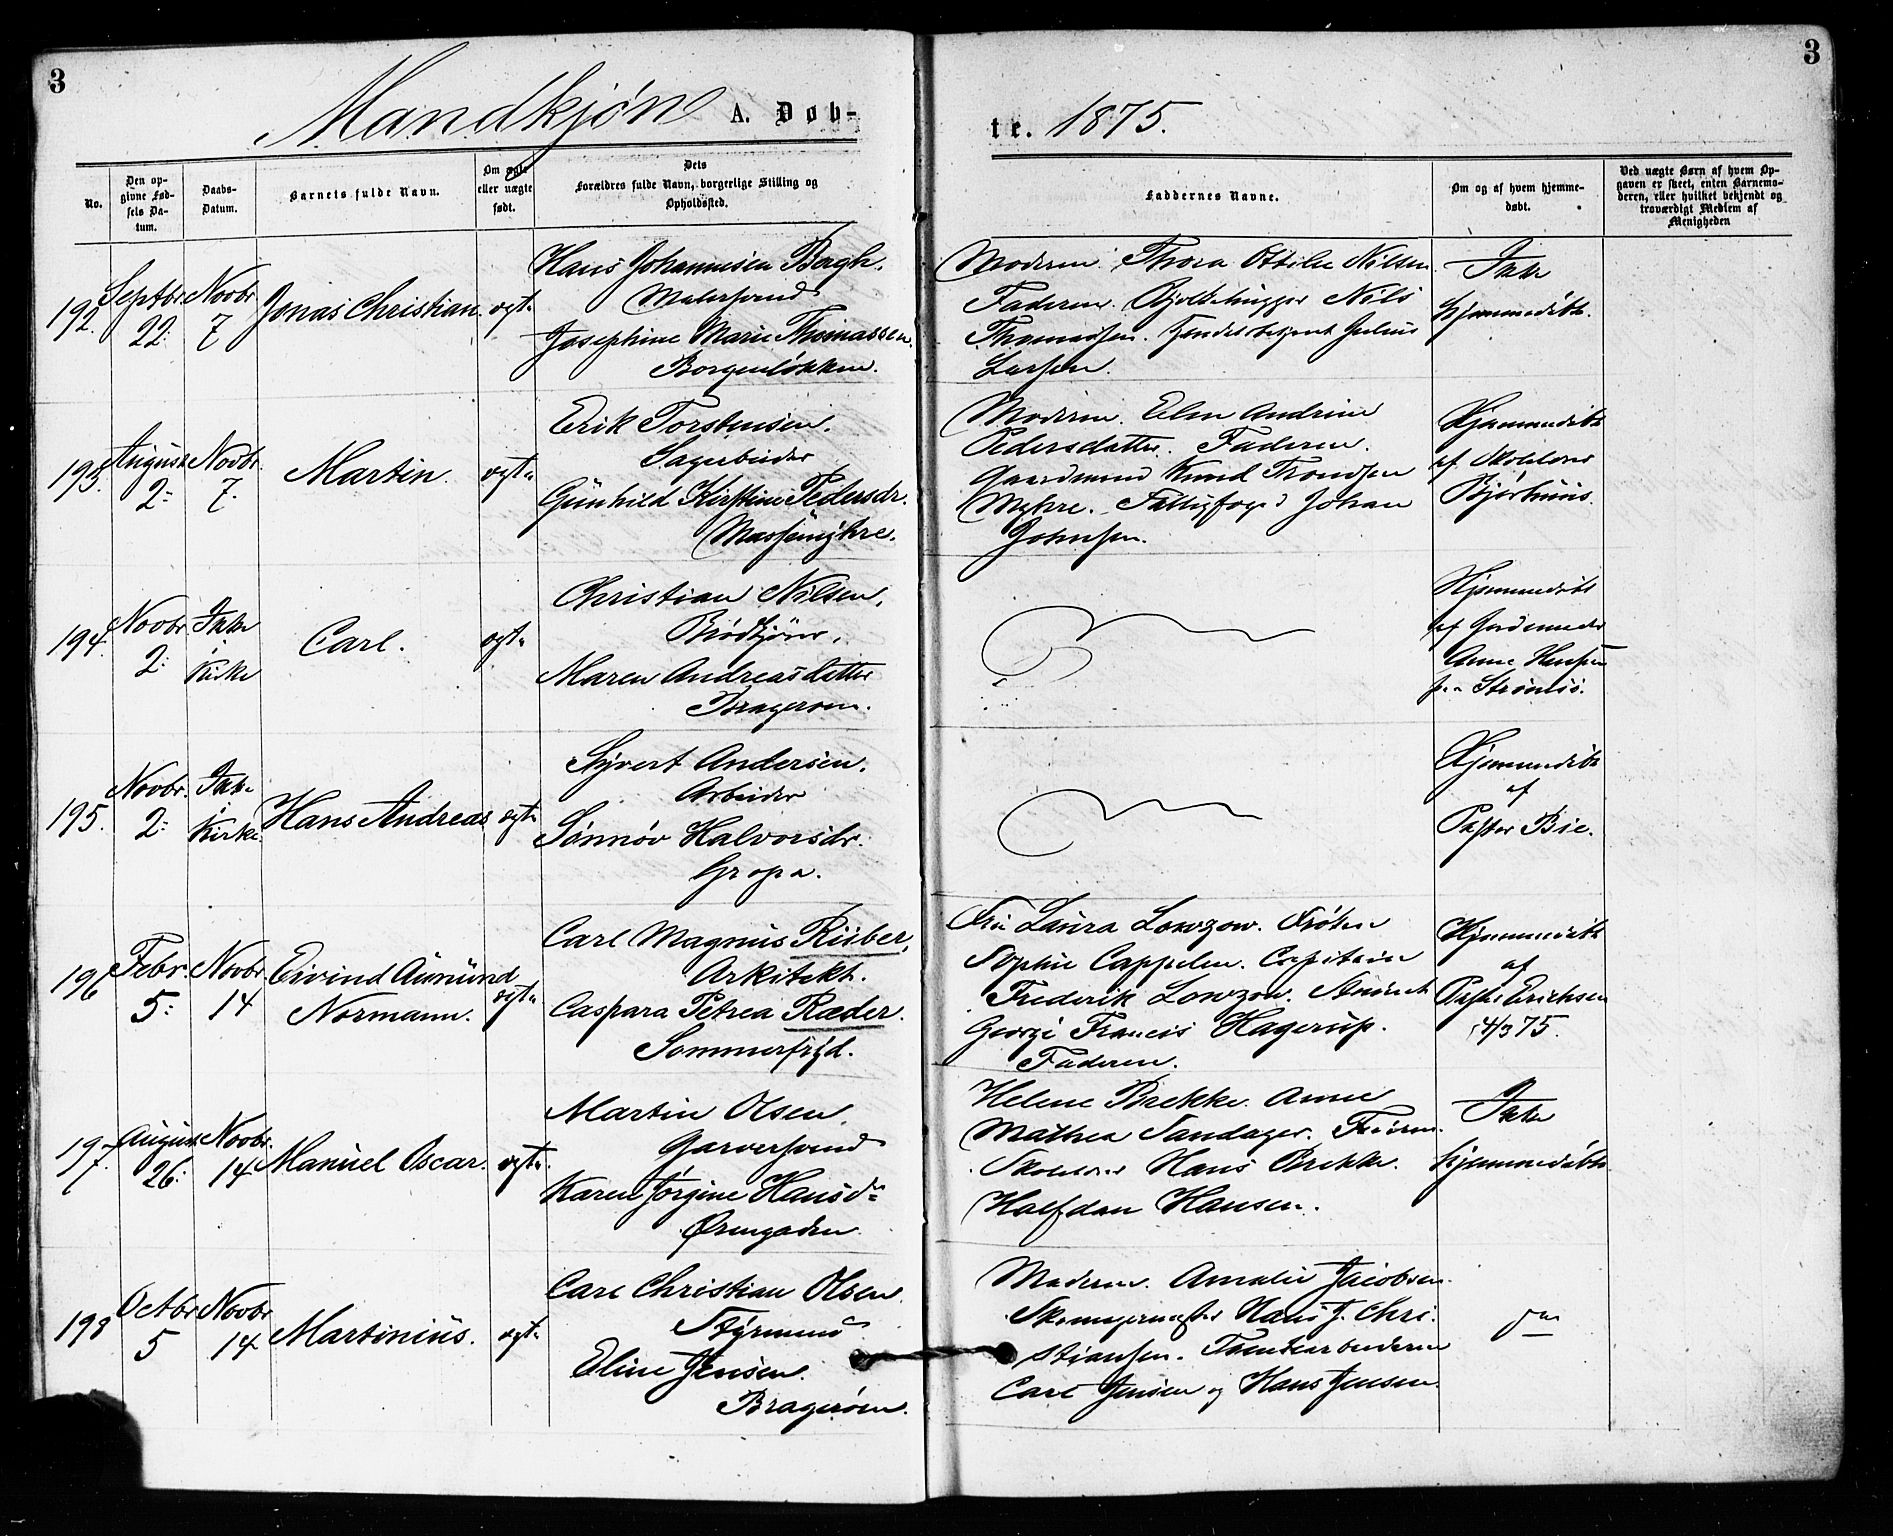 3
3
Mandkjøn A. Døb-
te. 1875.
No.
Den op-
givne Fød-
sels Da-
tum.
Daabs-
Datum.
Barnets fulde Navn.
Om ægte
eller uægte
født.
Dets
Forældres fulde Navn, borgerlige Stilling og
Opholdssted.
Faddernes Navne.
Om og af hvem hjemme-
døbt.
Ved uægte Børn af hvem Op-
gaven er skeet, enten Barnemo-
deren, eller hvilket bekjendt og
troværdigt Medlem af
Menigheden
192.
Septbr
22:
Novbr
7
Jonas Christian.
ægte
Hans Johannesen Bergh.
Malersvend
Josephine Marie Thomassen.
Borgenløkken.
Moderen. Thora Ottilie Nilsen.
Faderen. Nils
Thomassen. Handelsbetjent Julius
Larsen.
Ikke
hjemmedøbt.
193.
August
2:
Novbr.
7.
Martin.
ægte
Erik Torstensen.
Sagarbeider
Günhild Kirstine Pedersdr.
Moderen. Elen Andrine
Pedersdatter. Faderen.
Gaardmand Knud Trondsen
Myhre. Fattigfoged Johan
Johnsen.
Hjemmedøbt
af
194.
Novbr
2:
Ikke
i
Kirke
Carl.
ægte
Christian Nilsen,
Maren Andreasdatter
Bragerøen.
Hjemmedøbt
af Jordemoder
Anne Hansen
paa Strømsø.
195.
Novbr.
2:
Ikke
i
Kirke.
Hans Andreas
ægte
Syvert Andersen.
Arbeider
Sønnøv Halvorsdr.
Gropa.
Hjemmedøbt
af
Pastor Bie.
196
Febr.
5:
Novbr.
14
Eivind Aümünd
Normann.
ægte
Carl Magnus Riiber,
Arkitekt.
Caspara Petrea Ræder.
Sommerfryd.
Frü Laüra Lowzow. Frøken
Sophie Cappelen. Capitain
Frederik Lowzow. Stüdent
Georg Francis Hagerup.
Faderen.
Hjemmedøbt
af
Pastor Erichsen
14/3 75.
197.
August
26:
Novbr.
14
Manüel Oscar.
ægte
Martin Olsen,
Garversvend
Karen Jørgine Hansdr
Ørengaden.
Helene Brekke. Anne
Mathea Sandager. Faderen.
Skolelærer Hans Brekke.
Halfdan Hansen.
Ikke
hjemmedøbt.
198
Octbr
5
Novbr
14
Martiniüs.
ægte
Carl Christian Olsen.
Styrmand
Eline Jensen.
Bragerøen.
Moderen. Amalie Jacobsen.
Skomagermester Hans J. Chri-
stiansen. Tomtearbeiderne
Carl Jensen og Hans Jensen.
do